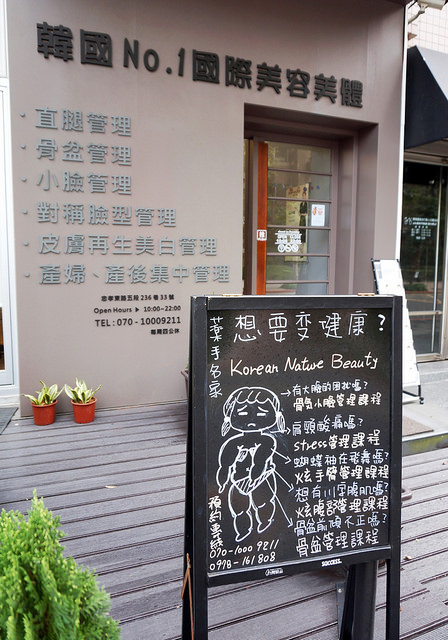 韓國No.1國際美容美體
·直腿管理
·骨盆管理
·小臉管理
·對稱臉型管理
·皮膚再生美白管理
·產婦、產後集中管理
忠孝東路五段236巷33號
Open Hours ▶ 10:00~22:00
TEL: 070 - 10009211
每周四公休
藥手名家
想要变健康?
Korean Natuve Beauty
→有大臉的困扰嗎?
骨氣小臉管理課程
肩頸酸痛嗎?
stress管理課程
蝴蝶袖在飛舞嗎?
炫手臂管理課程
想有川字腹肌嗎?
炫腹部管理課程
骨盆前傾不正嗎?
骨盆管理課程
預約專線
070-1000 9211
0978-161808
success.